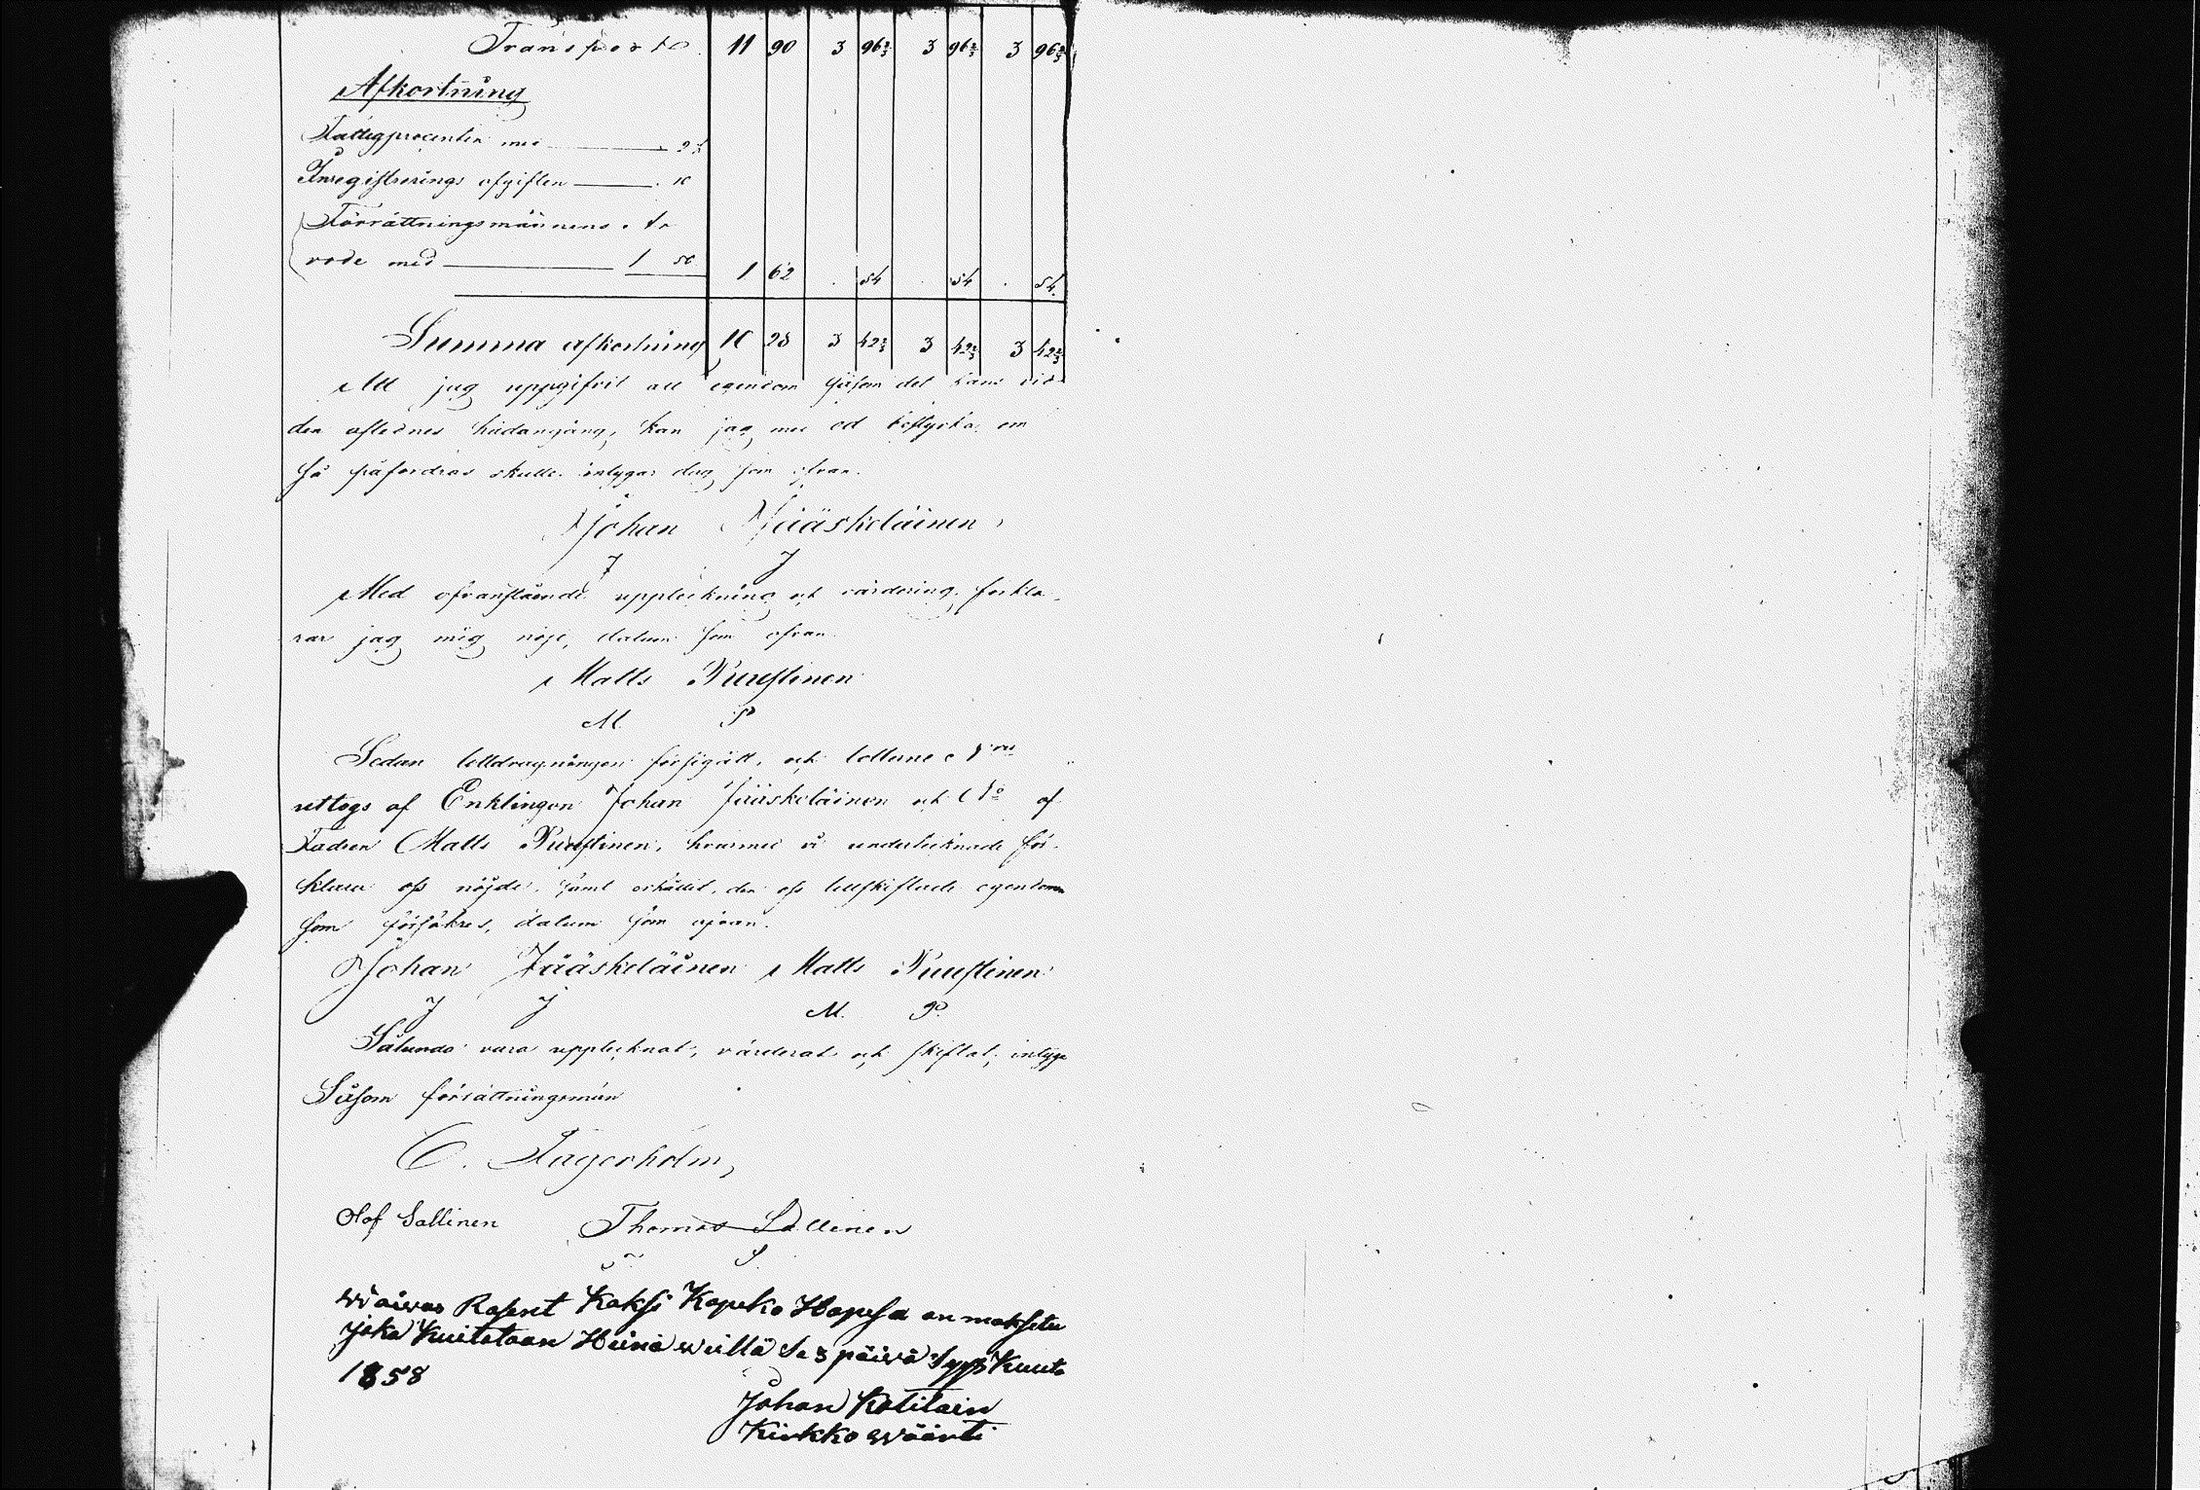 Transport 11 90 3 96⅔ 3 96⅔ 3 96⅔
Afkortning
Fattigprocenten med 2
Inregistrerings afgiften 10
Förrättningsmännens ar
vode med 1 50 1 62 . 54 . 54 . 54.
Summa afkortning 10 28 3 42⅔ 3 42⅔ 3 42⅔
Att jag uppgifvit all egendom såsom det fans vid
den aflednes hädangång, kan jag med ed bestyrka om
så påfordras skulle intygar dag som ofvan.
Johan Jääskeläinen
J J
Med ofvanstående uppteckning och värdering förkla
rar jag mig nöjd, datum som ofvan.
Matts Puustinen
M. P
Sedan lottdragningen försigått, och lotterne
uttogs af Enklingen Johan Jääskeläinen och N:o af
Fadren Matts Puustinen, hvarmed vi undertecknade för
klara oss nöjde, samt erhållit den oss tillskiftade egendomen
som försäkres, datum som ofvan.
Johan Jääskeläinen Matts Puustinen
J J M. P.
Sålunda vara upptecknat, värderat och skiftat, intyga
Såsom förrättningsmän
C. Fagerholm
Olof Sallinen Thomas Sallinen
S.
Waivas Rosent Kaksi Kopeko Hopesa on maksetu
joka Kuitetaan Heinäweillä Se 3 päivä Syys Kuuta
1858
Johan Kotilain
Kirkko wäärti